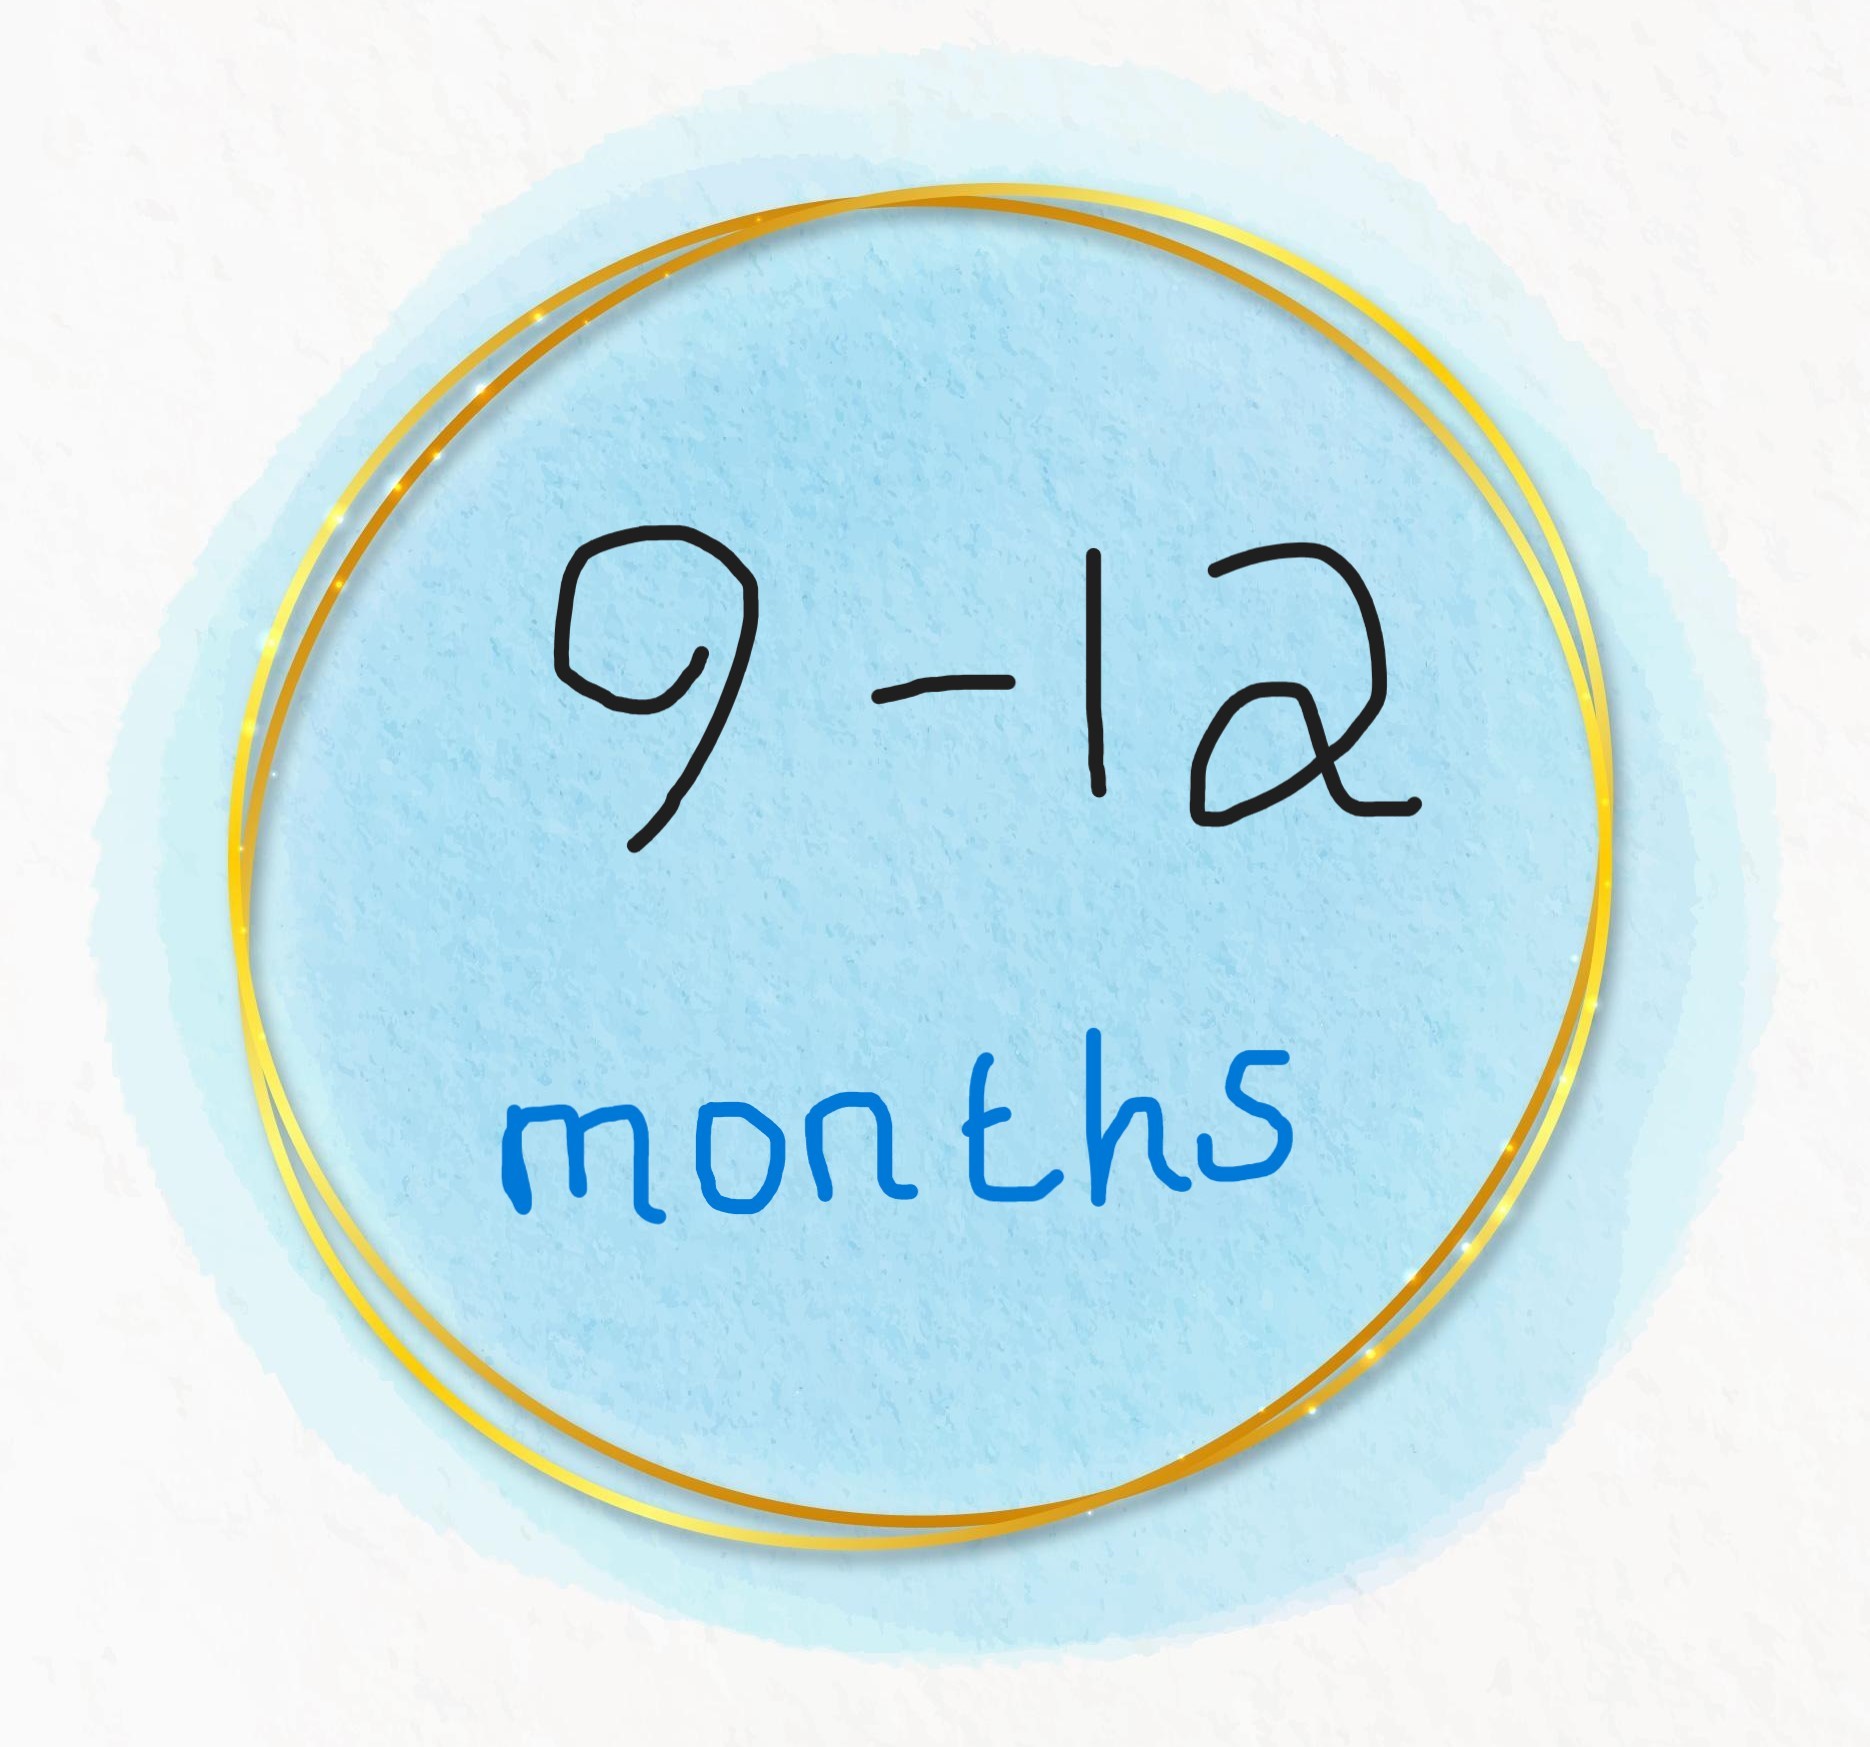 9-12
months